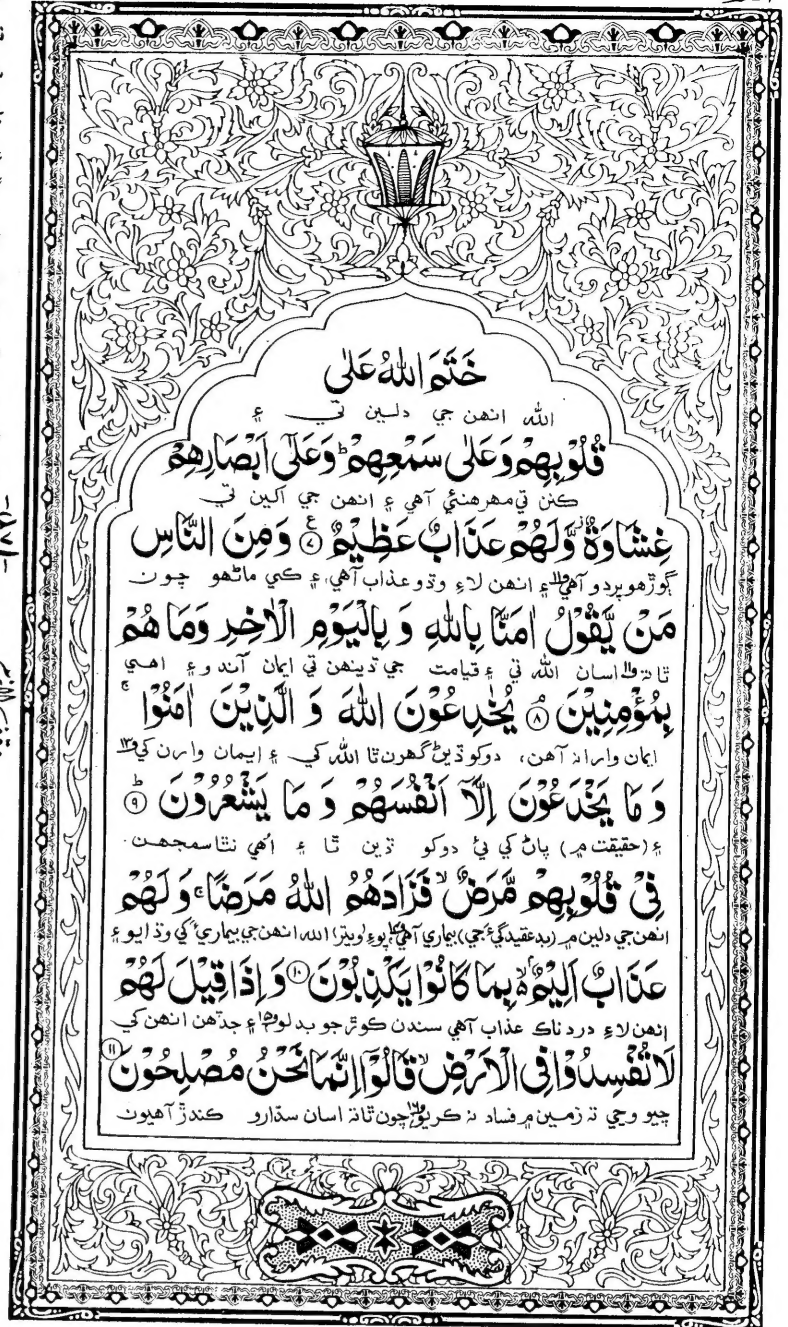 خَتَمَ اللّٰهُ عَلٰى
الله انهن جي دلين تي ۽
قُلُوْبِهِمْ وَعَلٰى سَمْعِهِمْ ؕ وَعَلٰٓى اَبْصَارِهِمْ
ڪنن تي مهر هنئي آهي ۽ انهن جي اکين تي
غِشَاوَةٌ ۫ وَّلَهُمْ عَذَابٌ عَظِيْمٌ ۧ ﴿۷﴾ وَمِنَ النَّاسِ
ڳوڙهو پردو آهي ۽ انهن لاءِ وڏو عذاب آهي، ۽ ڪي ماڻهو چون
مَنْ يَّقُوْلُ اٰمَنَّا بِاللّٰهِ وَ بِالْيَوْمِ الْاٰخِرِ وَمَا هُمْ
ٿا ته اسان الله تي ۽ قيامت جي ڏينهن تي ايمان آندو ۽ اهي
بِمُؤْمِنِيْنَ ۘ ﴿۸﴾ يُخٰدِعُوْنَ اللّٰهَ وَ الَّذِيْنَ اٰمَنُوْا ۚ
ايمان وارا نه آهن، دوکو ڏيڻ گهرن ٿا الله کي ۽ ايمان وارن کي
وَ مَا يَخْدَعُوْنَ اِلَّآ اَنْفُسَهُمْ وَ مَا يَشْعُرُوْنَ ؕ ﴿۹﴾
۽ (حقيقت ۾) پاڻ کي ئي دوکو ڏين ٿا ۽ اُهي نٿا سمجهن.
فِيْ قُلُوْبِهِمْ مَّرَضٌ ۙ فَزَادَهُمُ اللّٰهُ مَرَضًا ۚ وَلَهُمْ
انهن جي دلين ۾ (بدعقيدگيءَ جي) بيماري آهي پوءِ (ويتر) الله انهن جي بيماريءَ کي وڌايو ۽
عَذَابٌ اَلِيْمٌۢ ۙ بِمَا كَانُوْا يَكْذِبُوْنَ ﴿۱۰﴾ وَ اِذَا قِيْلَ لَهُمْ
انهن لاءِ درد ناڪ عذاب آهي سندن ڪوڙ جو بدلو ۽ جڏهن انهن کي
لَا تُفْسِدُوْا فِى الْاَرْضِ ۙ قَالُوْٓا اِنَّمَا نَحْنُ مُصْلِحُوْنَ ﴿۱۱﴾
چيو وڃي ته زمين ۾ فساد نه ڪريو چون ٿا ته اسان سڌارو ڪندڙ آهيون